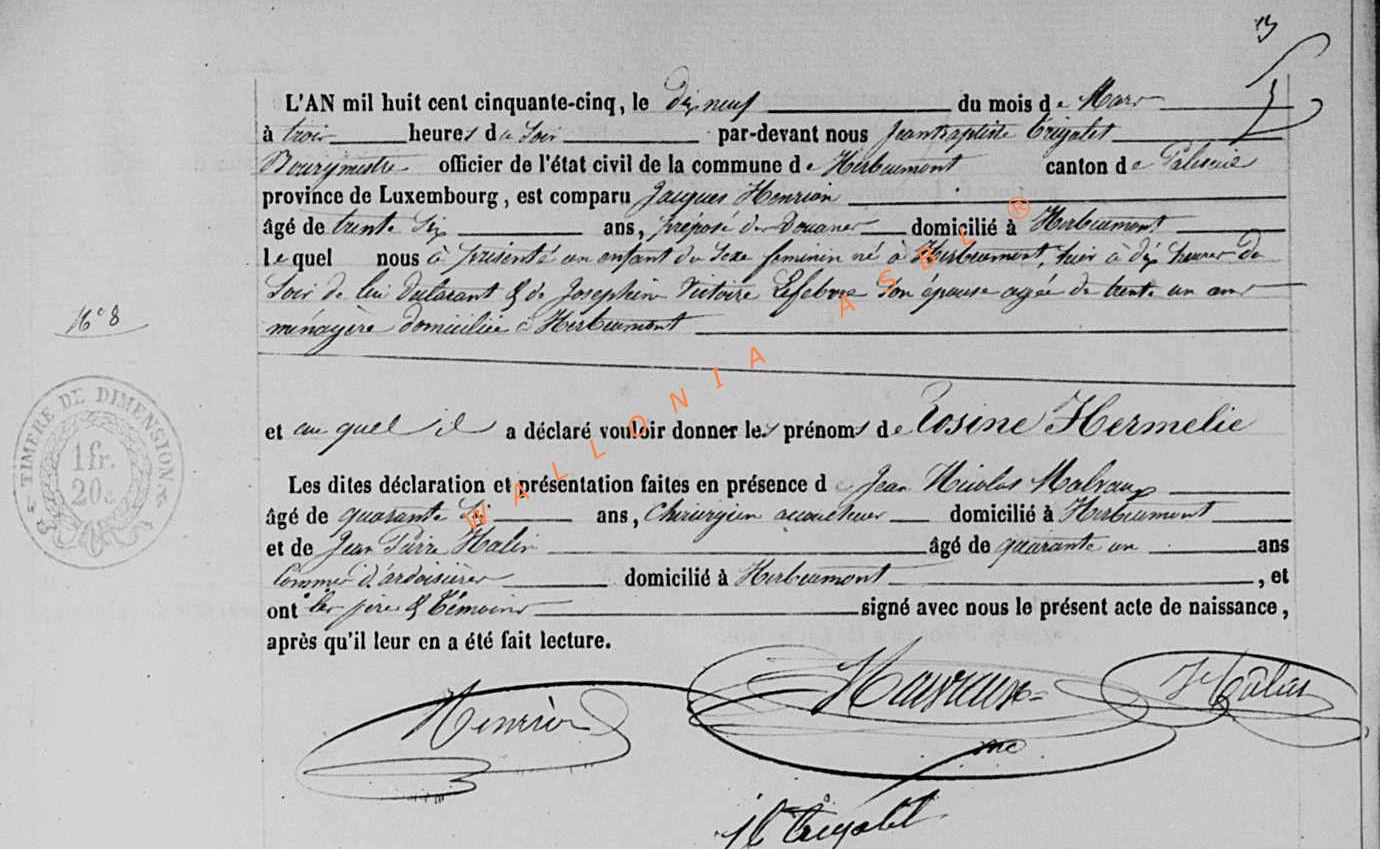 13
L'AN mil huit cent cinquante-cinq, le dix neuf du mois de Mars
à trois heures du Soir par-devant nous Jeanbaptiste Trigalet
Bourgmestre officier de l'état civil de la commune de Herbeumont canton de Paliseul
province de Luxembourg, est comparu Jacques Henrion
âgé de trente Six ans, préposé des Douanes domicilié à Herbeumont
lequel nous à présenté un enfant du Sexe feminin né à Herbeumont, hier à dix heures du
Soir de lui Déclarant & de Josephine Victoire Lefebvre Son épouse agée de trente un ans
ménagère domiciliée à Herbeumont
N° 8
TIMBRE DE DIMENSION
1 fr.
20 c
et au quel il a déclaré vouloir donner les prénoms de Rosine Hermelie
Les dites déclaration et présentation faites en présence de Jean Nicolas
âgé de quarante Six ans, Chirurgien accoucheur domicilié à Herbeumont
et de Jean Pierre Halin âgé de quarante un ans
Commis d'ardoisières domicilié à Herbeumont, et
ont les père & Témoins signé avec nous le présent acte de naissance,
après qu'il leur en a été fait lecture.
Henrion
Trigalet
WALLONIA ASBL ®